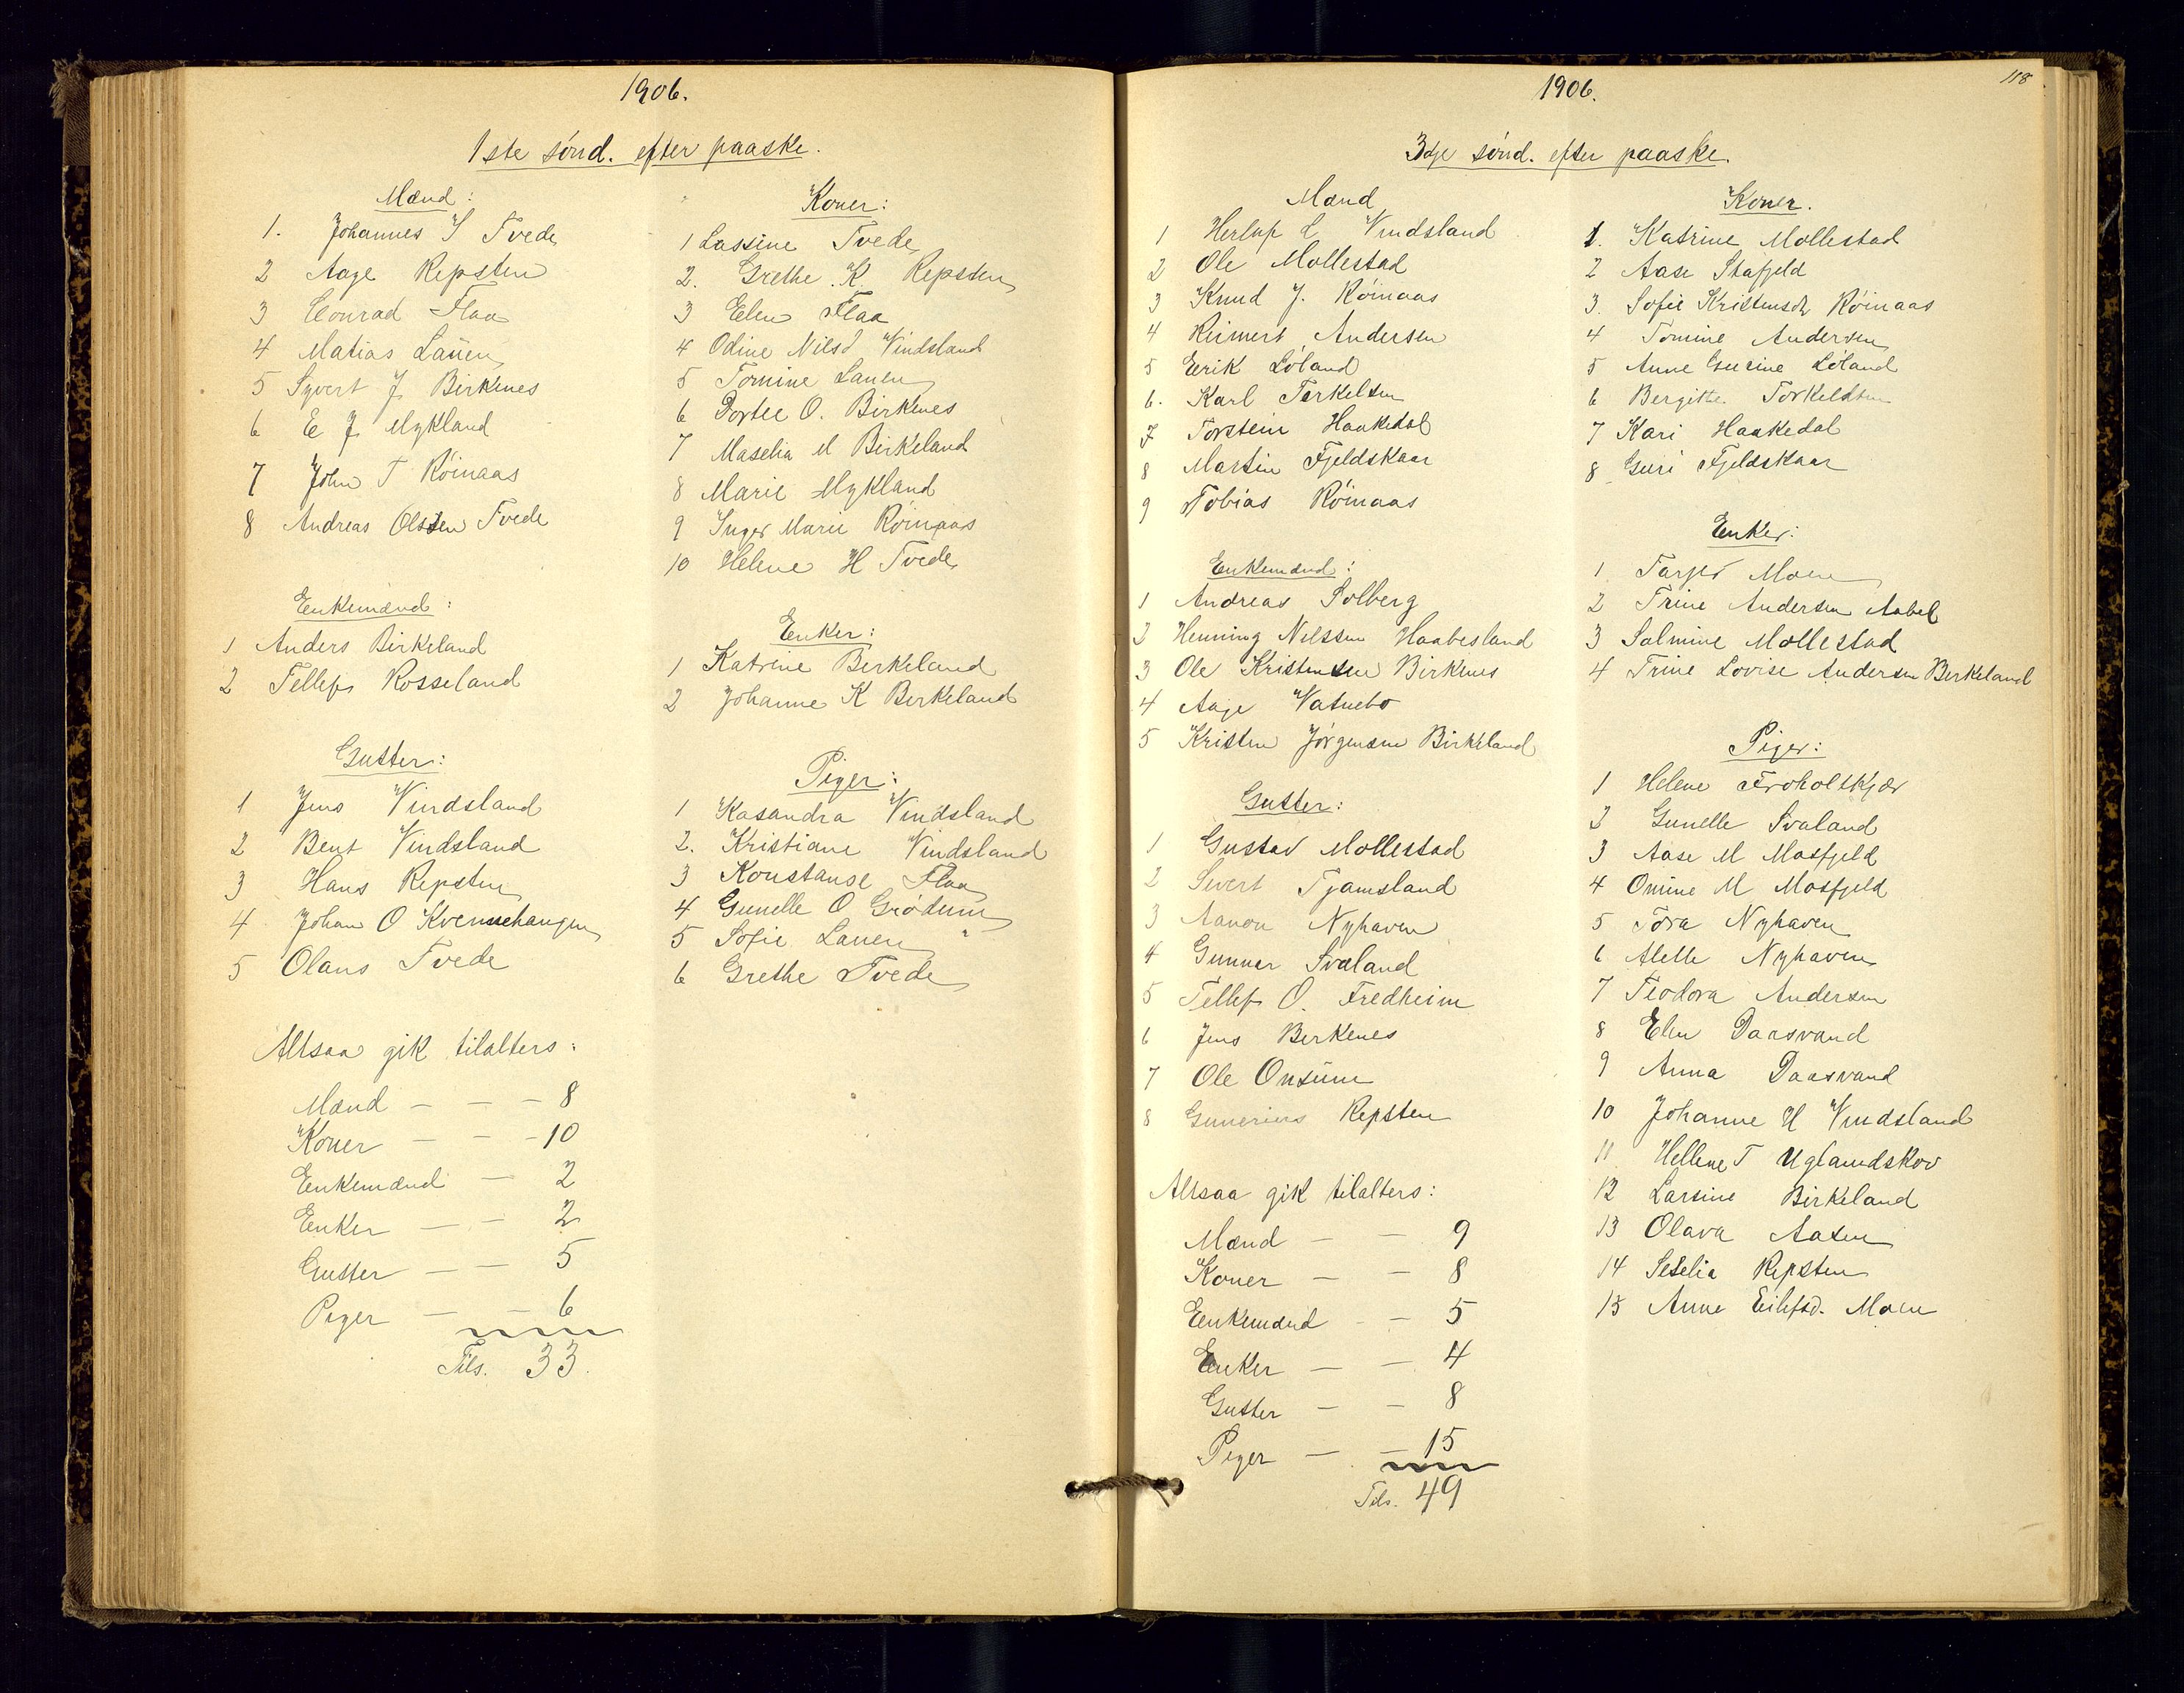 1906.
1ste sönd. efter paaske.
Mænd:
1. Johannes S Tvede
2 Aage Repsten
3 Conrad Flaa
4 Matias Lauen
5 Syvert J. Birkenes
6 E J Mykland
7 John T Röinaas
8 Andreas Olsen Tvede
Enkemænd:
1 Anders Birkeland
2 Tellefs Rosseland
Gutter:
1 Jens Vindsland
2 Bent Vindsland
3 Hans Repsten
4 Johan O Kvennehaugen
5 Olaus Tvede
Altsaa gik tilalters:
Mænd — — — 8
Koner — — — 10
Enkemænd — 2
Enker — — 2
Gutter — — 5
Piger — — 6
Tils. 33.
Koner:
1 Lassine Tvede
2. Grethe K. Repsten
3 Elen Flaa
4 Odine Nilsd Vindsland
5 Tomine Lauen
6 Dortee O. Birkenes
7 Maselia M Birkeland
8 Marie Mykland
9 Inger Marie Röinaas
10 Helene H Tvede
Enker:
1 Katrine Birkeland
2 Johanne K Birkeland
Piger:
1 Kasandra Vindsland
2. Kristiane Vindsland
3 Konstanse Flaa
4 Gunelle O Grödum
5 Sofie Lauen
6 Grethe Tvede
118
1906.
3dje sönd. efter paaske.
Mænd
1 Herlof L Vindsland
2 Ole Mollestad
3 Knud J. Röinaas
4 Reimert Andersen
5 Eerik Löland
6. Karl Terkelsen
7 Torstein Haakedal
8 Martin Fjeldskaar
9 Tobias Röinaas
Enkemænd:
1 Andreas Solberg
2 Henning Nilssen Haabesland
3 Ole Kristensen Birkenes
4 Aage Vatnebo
5 Kristen Jörgensen Birkeland
Gutter:
1 Gustav Mollestad
2 Sivert Tjamsland
3 Aanon Nyhaven
4 Gunnar Svaland
5 Tellefs O. Fredheim
6 Jens Berkenes
7 Ole Onsum
8 Gunerius Repsten
Altsaa gik tilalters:
Mænd — — 9
Koner — — 8
Enkemænd — — 5
Enker — — 4
Gutter — — 8
Piger — — 15
Tils. 49
Koner.
1. Katrine Mollestad
2 Aase Stafjeld
3. Sofie Kristensdr Röinaas
4 Tomine Andersen
5 Anne Gurine Löland
6 Bergitte Torkeldsen
7 Kari Haakedal
8 Guri Fjeldskaar
Enker:
1 Tarjer Moen
2 Trine Andersen Aabel
3 Salmine Mollestad
4 Trine Lovise Andersen Berkeland
Piger:
1 Helene Froholtkjær
2 Gunelle Svaland
3 Aase M Mosfjeld
4 Omine M Mosfjeld
5 Tora Nyhaven
6 Alette Nyhaven
7 Teodora Andersen
8 Elen Daasvand
9 Anna Daasvand
10 Johanne H Vindsland
11 Hellene T Uglandskov
12 Larsine Birkeland
13 Olava Aasen
14 Selelia Repsten
15 Anne Eilefsd. Moen